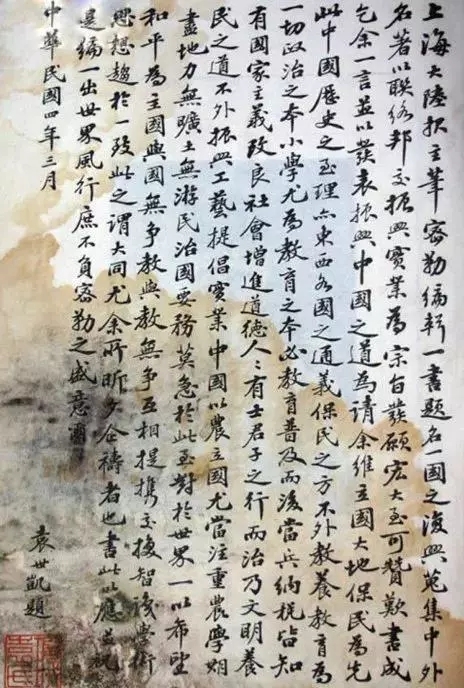 上海大陸报主筆密勒編輯一書題名一國之復興蒐集中外
名著以聯絡邦交振興實業為宗旨發願宏大至可贊歎書成
乞余一言並以發表振興中國之道為請余維立國大地保民為先
此中國歷史之至理亦東西各國之通義保民之方不外教養教育為
一切政治之本小學尤為教育之本必教育普及而後當兵納稅皆知
有國家主義改良社會增進道德人〻有士君子之行而治乃文明養
民之道不外振興工藝提倡實業中國以農立國尤當注重農學期
盡地力無曠土無游民治國要務莫急於此至對於世界一以希望
和平為主國與國無爭教與教無爭互相提携交換智識學術
思想趨於一致此之謂大同尤余所昕夕企禱者也書此以應並祝
是編一出世界風行庶不負密勒之盛意爾
中華民國四年三月
袁世凱題